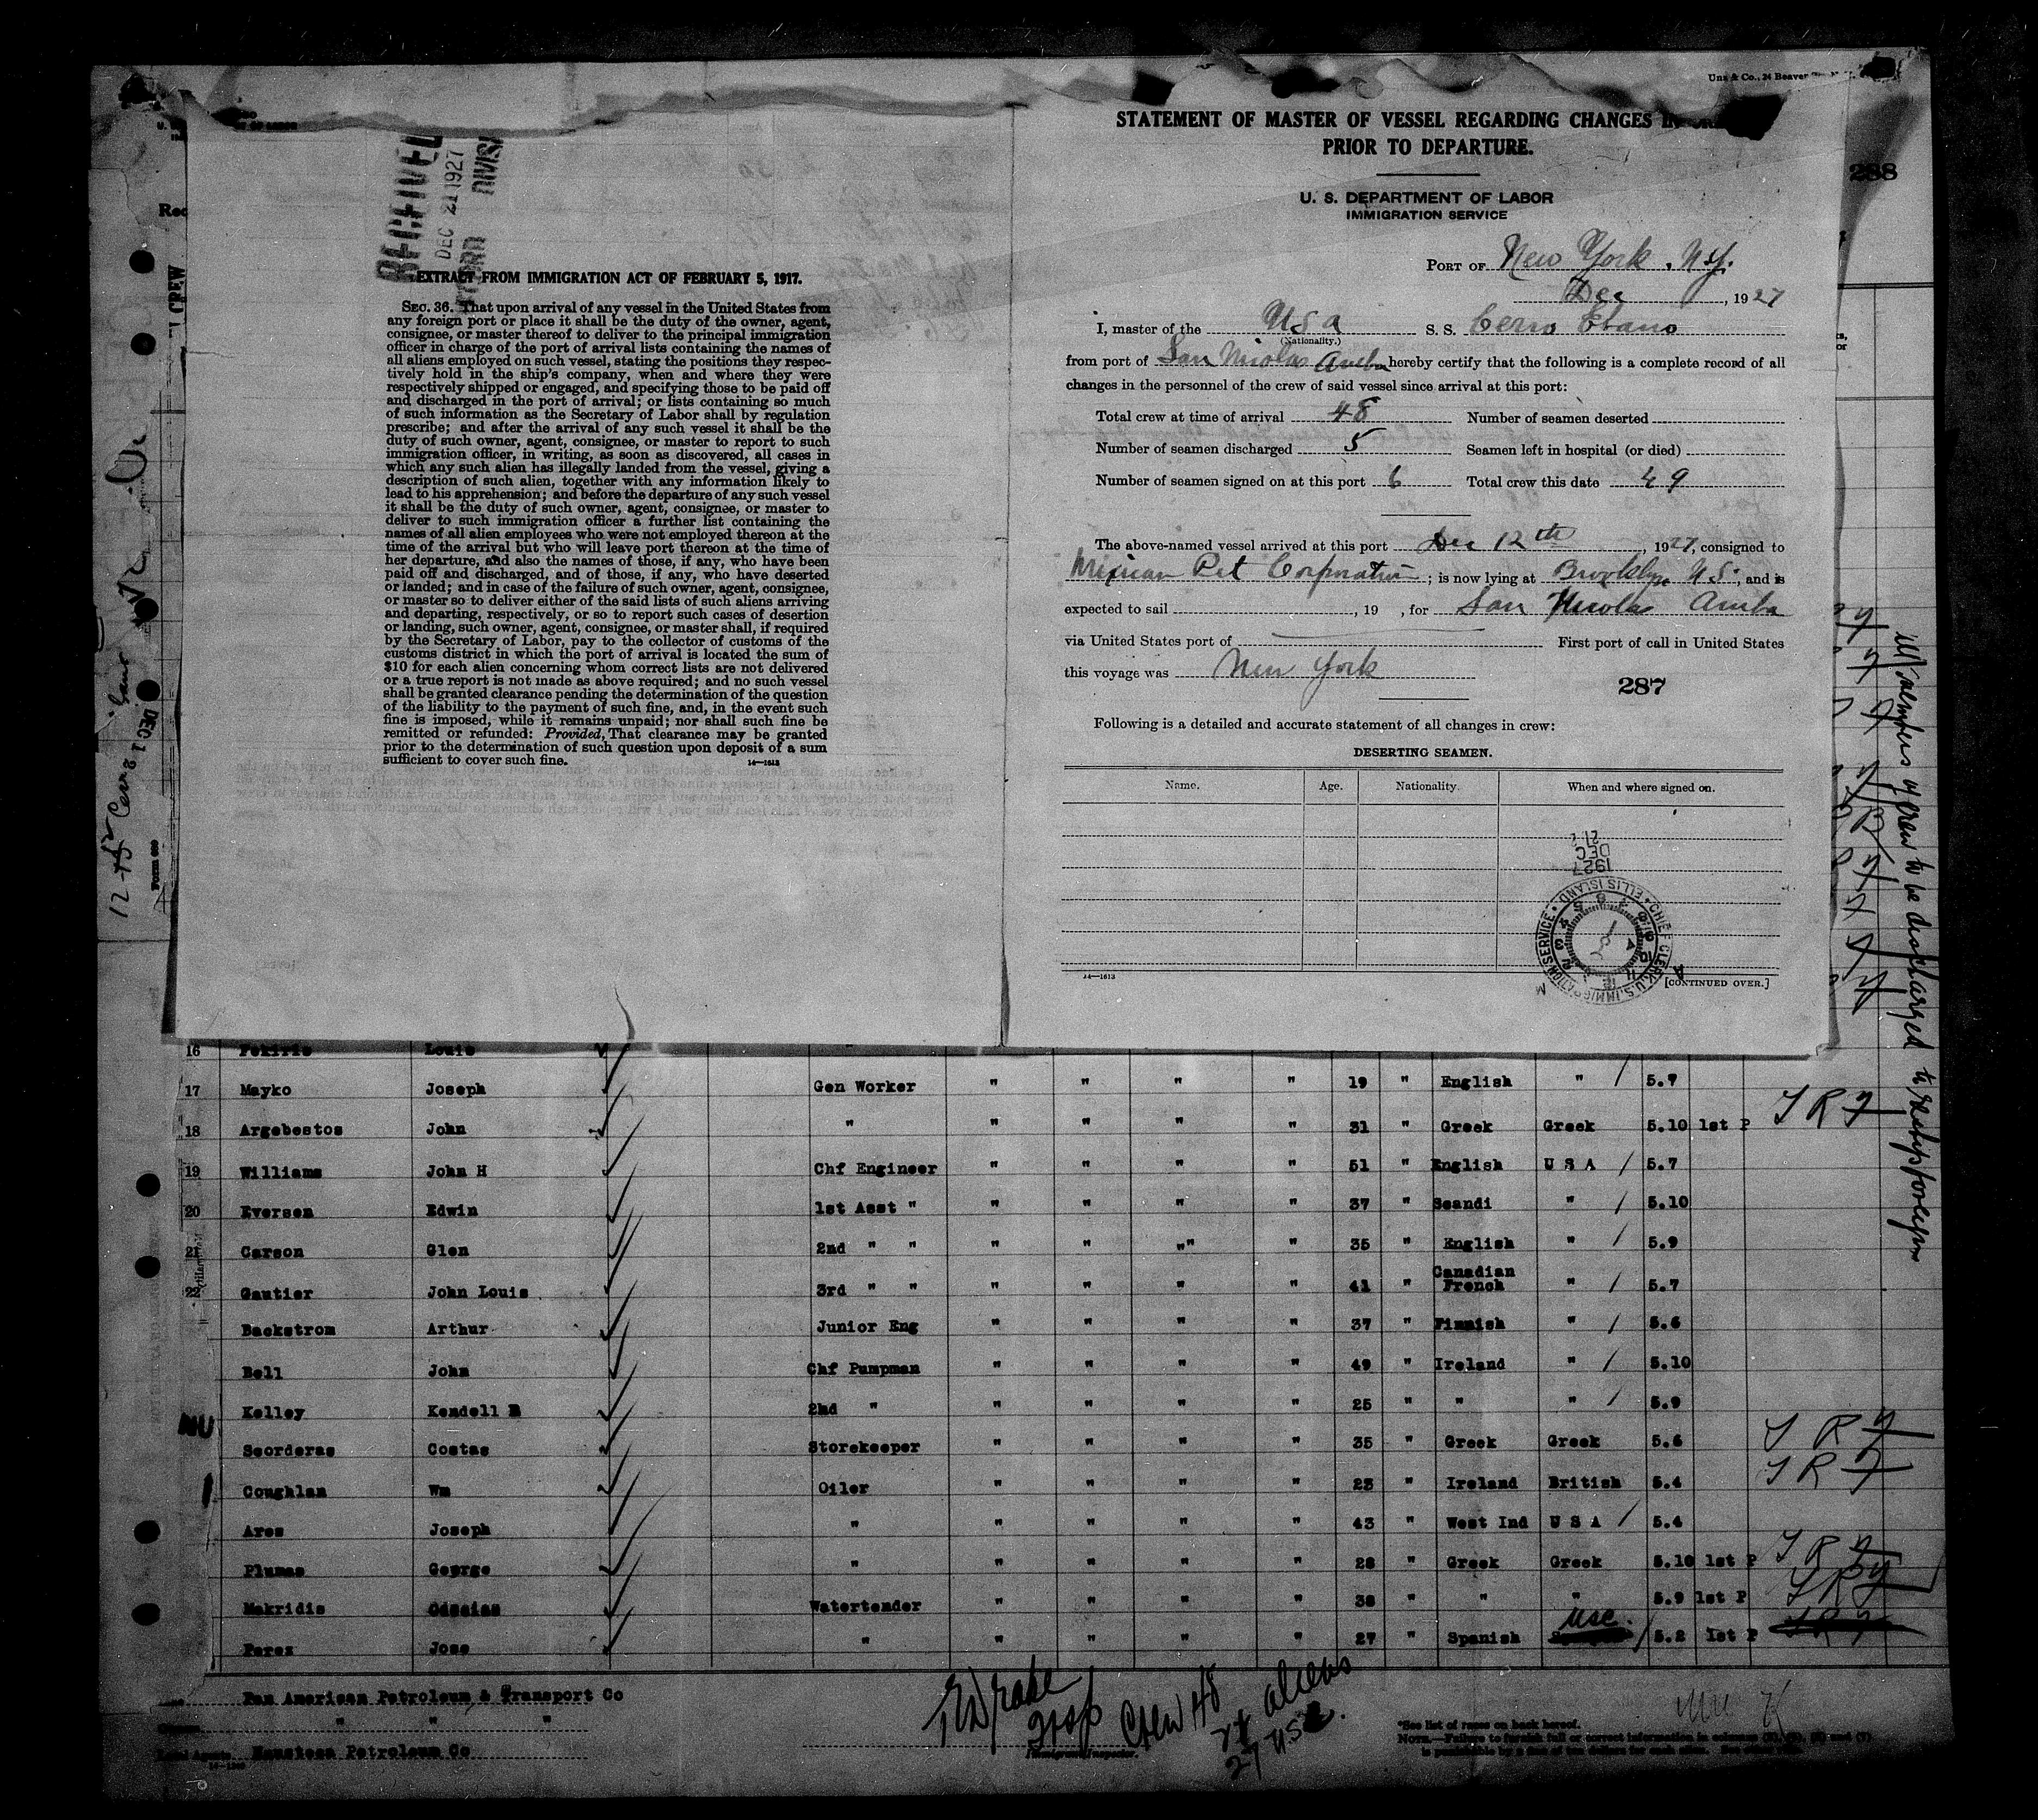 Unz & Co., 24 Beaver
STATEMENT OF MASTER OF VESSEL REGARDING CHANGES IN
PRIOR TO DEPARTURE.
288
U. S. DEPARTMENT OF LABOR
IMMIGRATION SERVICE
PORT OF New York, N.Y.
Dec, 1927
I, master of the USA S. S. Cerro Ebano
(Nationality.)
from port of San Nicolas Aruba hereby certify that the following is a complete record of all
changes in the personnel of the crew of said vessel since arrival at this port:
Total crew at time of arrival 48 Number of seamen deserted
Number of seamen discharged 5 Seamen left in hospital (or died)
Number of seamen signed on at this port 6 Total crew this date 49
The above-named vessel arrived at this port Dec 12th, 1927, consigned to
Mexican Pet Corporation; is now lying at Brooklyn, and is
expected to sail , 19 , for San Nicolas Aruba
via United States port of First port of call in United States
this voyage was New York
287
Following is a detailed and accurate statement of all changes in crew:
DESERTING SEAMEN.
Name. Age. Nationality. When and where signed on.
1927
DEC
21
CHIEF CLERK, U.S. IMMIGRATION SERVICE • ELLIS ISLAND •
14—1613
[CONTINUED OVER.]
RECEIVED
DEC 21 1927
RECORD DIVISI
EXTRACT FROM IMMIGRATION ACT OF FEBRUARY 5, 1917.
SEC. 36. That upon arrival of any vessel in the United States from
any foreign port or place it shall be the duty of the owner, agent,
consignee, or master thereof to deliver to the principal immigration
officer in charge of the port of arrival lists containing the names of
all aliens employed on such vessel, stating the positions they respec-
tively hold in the ship's company, when and where they were
respectively shipped or engaged, and specifying those to be paid off
and discharged in the port of arrival; or lists containing so much
of such information as the Secretary of Labor shall by regulation
prescribe; and after the arrival of any such vessel it shall be the
duty of such owner, agent, consignee, or master to report to such
immigration officer, in writing, as soon as discovered, all cases in
which any such alien has illegally landed from the vessel, giving a
description of such alien, together with any information likely to
lead to his apprehension; and before the departure of any such vessel
it shall be the duty of such owner, agent, consignee, or master to
deliver to such immigration officer a further list containing the
names of all alien employees who were not employed thereon at the
time of the arrival but who will leave port thereon at the time of
her departure, and also the names of those, if any, who have been
paid off and discharged, and of those, if any, who have deserted
or landed; and in case of the failure of such owner, agent, consignee,
or master so to deliver either of the said lists of such aliens arriving
and departing, respectively, or so to report such cases of desertion
or landing, such owner, agent, consignee, or master shall, if required
by the Secretary of Labor, pay to the collector of customs of the
customs district in which the port of arrival is located the sum of
$10 for each alien concerning whom correct lists are not delivered
or a true report is not made as above required; and no such vessel
shall be granted clearance pending the determination of the question
of the liability to the payment of such fine, and, in the event such
fine is imposed, while it remains unpaid; nor shall such fine be
remitted or refunded: Provided, That clearance may be granted
prior to the determination of such question upon deposit of a sum
sufficient to cover such fine.
14—1613
CREW
Form 680
16 Fekiris Louis
17 Mayko Joseph Gen Worker " " " " 19 " English " / 5.7
18 Argebestos John " " " " " 31 " Greek Greek 5.10 1st P
19 Williams John H Chf Engineer " " " " 51 " English U S A / 5.7
20 Eversen Edwin 1st Asst " " " " " 37 " Scandi " / 5.10
21 Carson Glen 2nd " " " " "" " 35 " English " / 5.9
22 Gautier John Louis 3rd " " " " " " 41 " Canadian French " / 5.7
Backstrom Arthur Junior Eng " " " " 37 " Finnish " / 5.6
Bell John Chf Pumpman " " " " 49 " Ireland " / 5.10
Kelley Kendell B 2nd " " " " " 25 " " " / 5.9
Scorderas Costas Storekeeper " " " " 35 " Greek Greek 5.6
Coughlan Wm Oiler " " " " 23 " Ireland British 5.4
Ares Joseph " " " " " 43 " West Ind U S A / 5.4
Plumas George " " " " " 28 " Greek Greek 5.10 1st P
Makridis Watertender " " " " 38 " " " 5.9 1st P
Perez Jose " " " " " 27 " Spanish USC / 5.2 1st P
all members of crew to be discharged & reship foreign
Pan American Petroleum & Transport Co
" " "
Local Agents Huasteca Petroleum Co
Immigrant Inspector.
Crew 48
aliens
27 USC
*See list of races on back hereof.
NOTE.—Failure to furnish full or correct information in columns